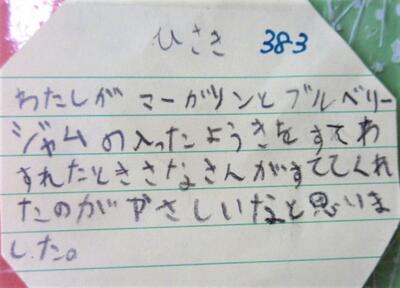 ひさき 38-3
わたしが マーガリンと ブルベリー
ジャムの入ったようきをすてわ
すれたときさなさんがすててくれ
たのがやさしいなと思いま
した。